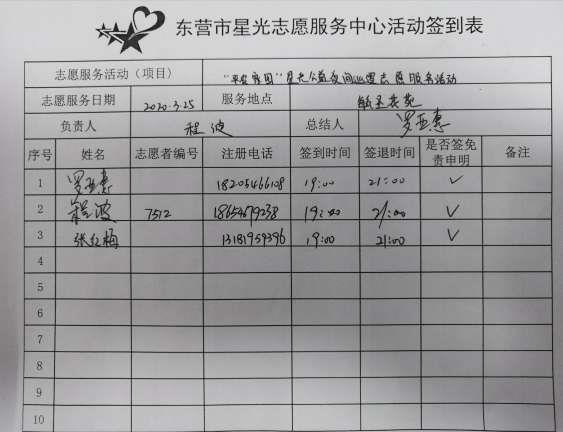 东营市星光志愿服务中心活动签到表
志愿服务活动（项目） "平安家园"星光公益夜间巡逻志愿服务活动
志愿服务日期 2020.3.25 服务地点
负责人 程波 总结人 罗亚惠
序号 姓名 志愿者编号 注册电话 签到时间 签退时间 是否签免责申明 备注
1 罗亚惠 18205466108 19:00 21:00 ✓
2 程波 7512 19:00 21:00 ✓
3 张红梅 13181959396 19:00 21:00 ✓
4
5
6
7
8
9
10